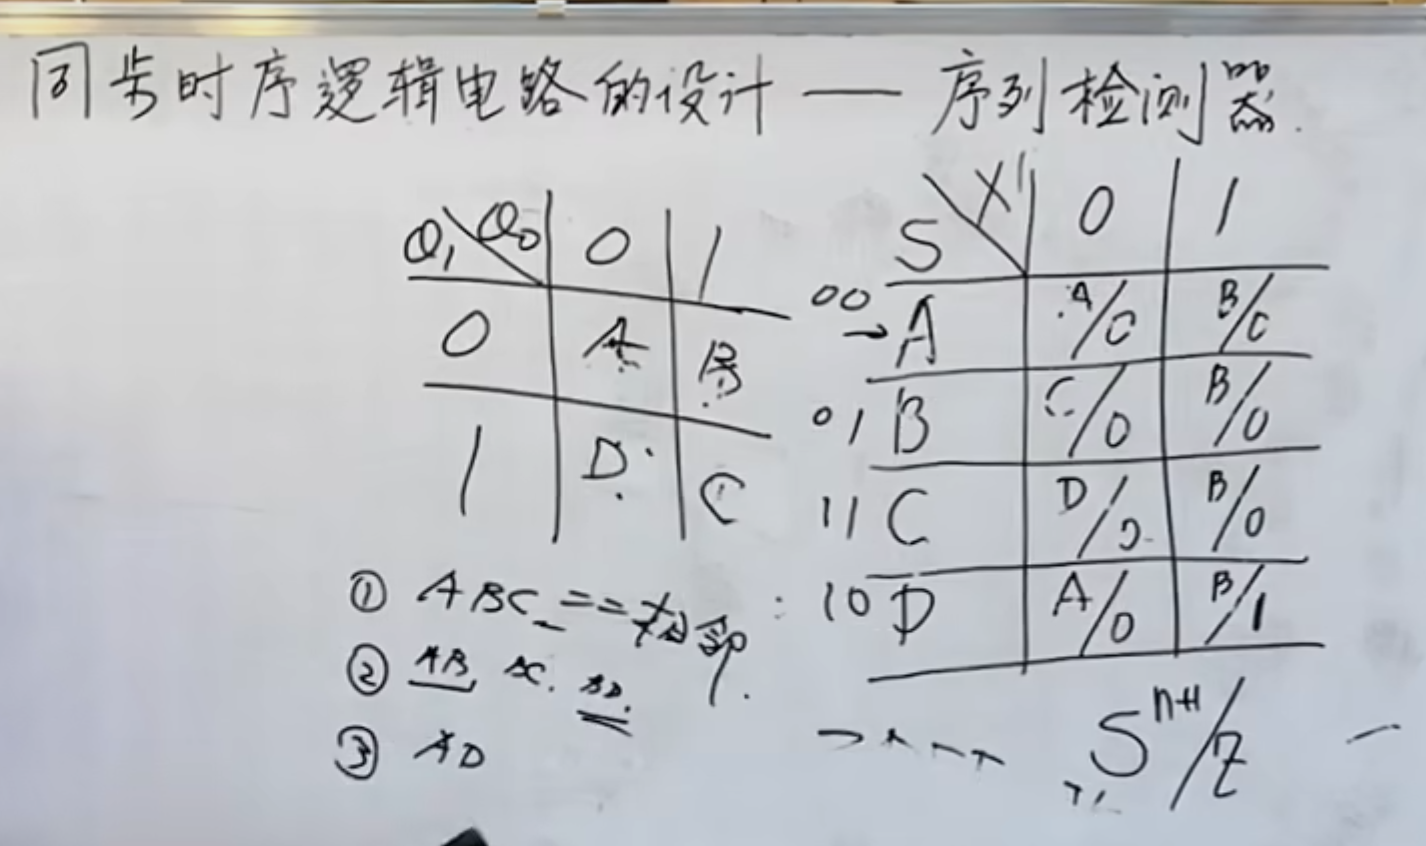 同步时序逻辑电路的设计 — 序列检测器.
Q₁ Q₀ 0 1
0 A B
1 D C
① ABC == 相邻.
② AB, BC. BD.
③ AD
S X 0 1
00 → A A/0 B/0
01 B C/0 B/0
11 C D/0 B/0
10 D A/0 B/1
Sⁿ⁺¹/Z